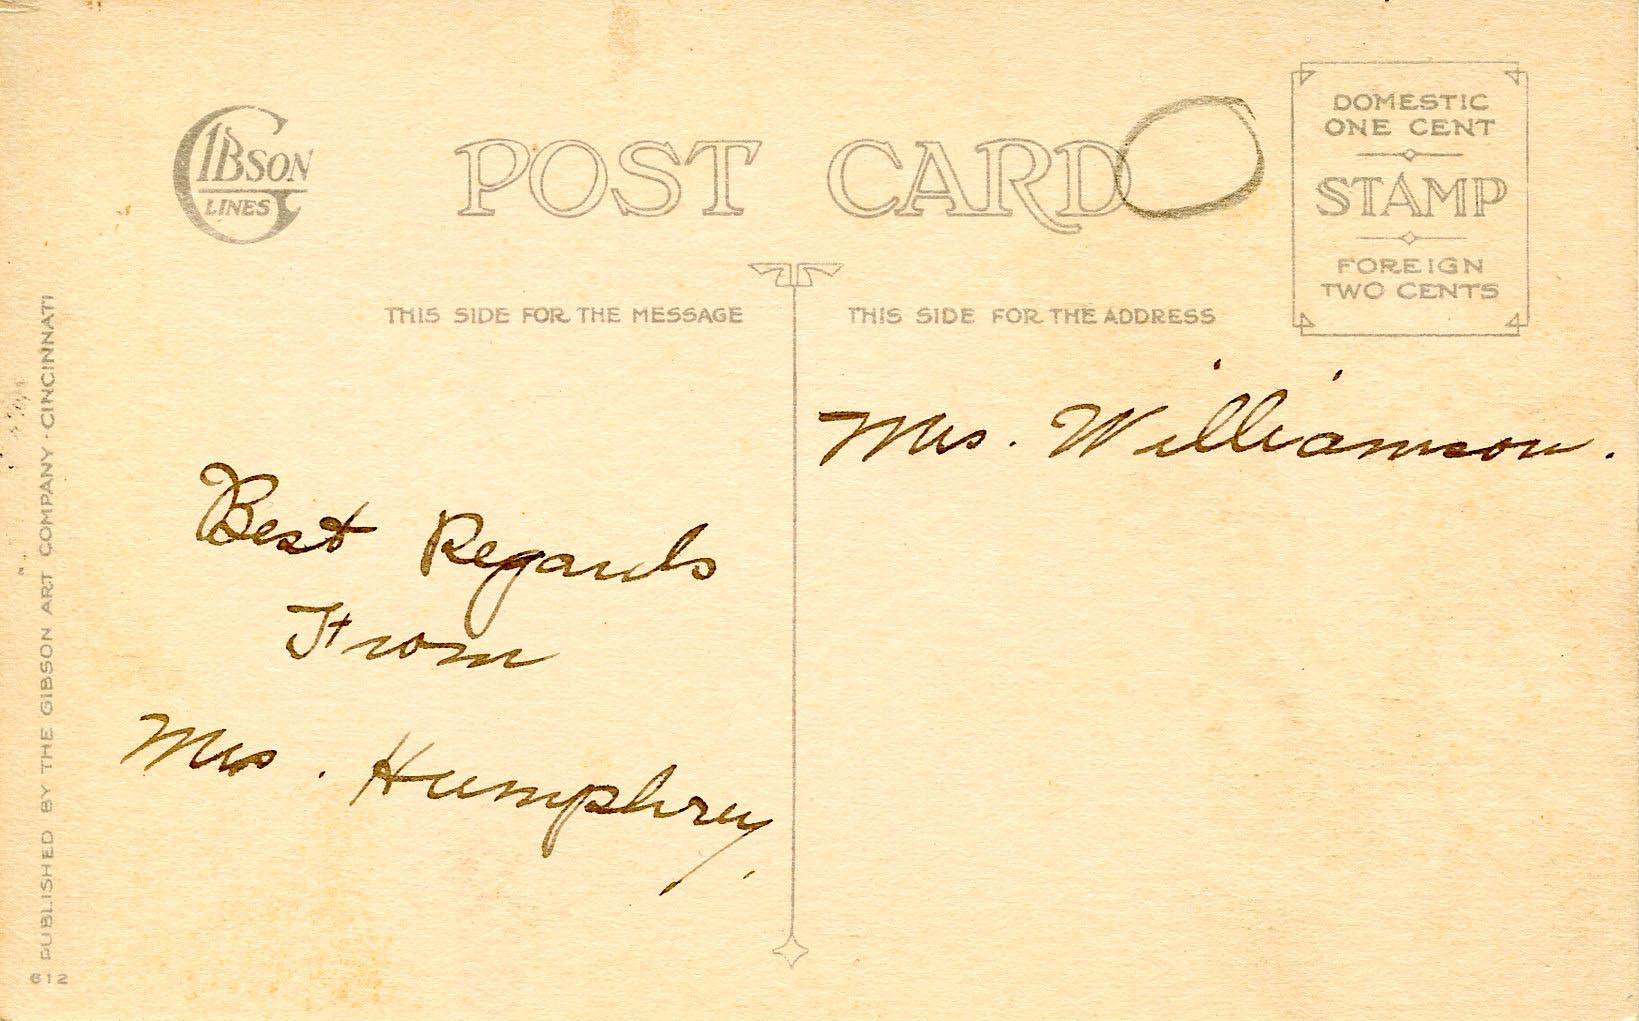 GIBSON
LINES
POST CARD
DOMESTIC
ONE CENT
STAMP
FOREIGN
TWO CENTS
THIS SIDE FOR THE MESSAGE
THIS SIDE FOR THE ADDRESS
Mrs. Williamson.
Best Regards
From
Mrs. Humphrey,
PUBLISHED BY THE GIBSON ART COMPANY · CINCINNATI
612